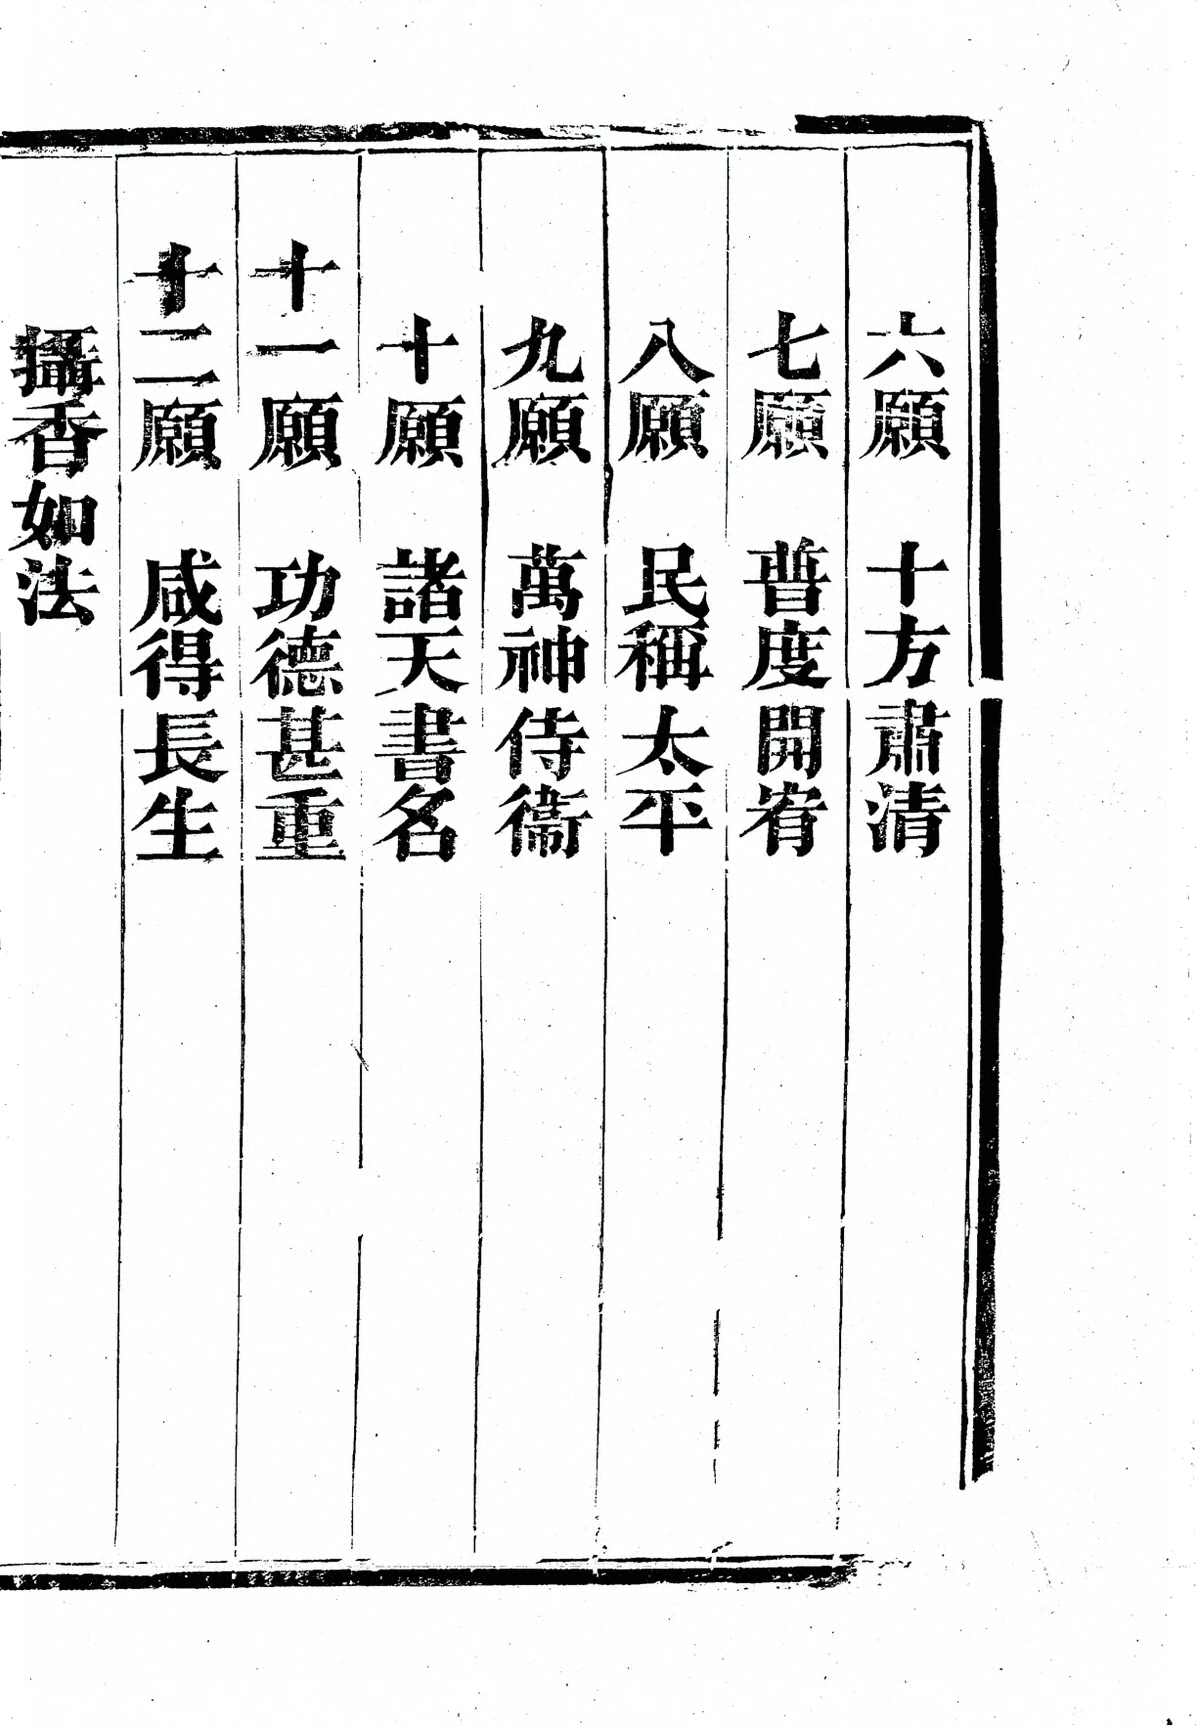 六願　十方肅清
七願　普度開宥
八願　民稱太平
九願　萬神侍衞
十願　諸天書名
十一願　功德甚重
十二願　咸得長生
攝香如法